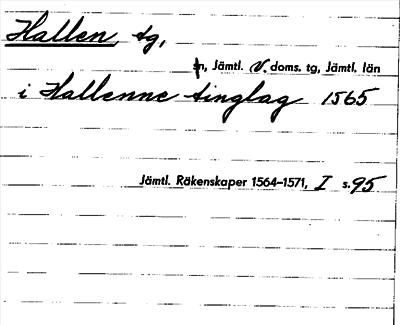 Hallen tg,
sn, Jämtl. V. doms. tg, Jämtl. län
i Hallenne tinglag 1565
Jämtl. Räkenskaper 1564-1571, I s. 95